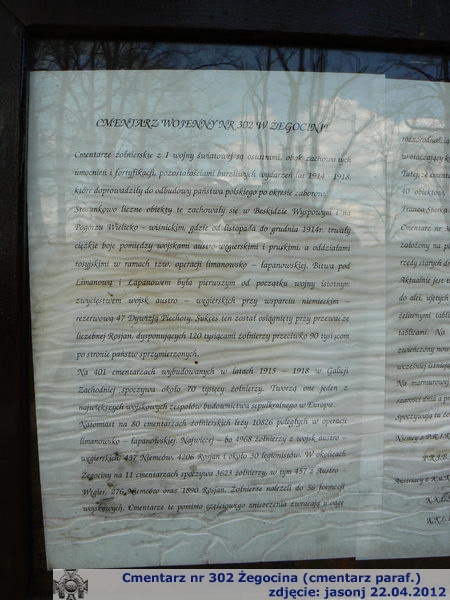 CMENTARZ WOJENNY NR 302 W ŻEGOCINIE
Cmentarze żołnierskie z I wojny światowej są ostatnimi, obok zachowanych
umocnień i fortyfikacji, pozostałościami burzliwych wydarzeń lat 1914 - 1918,
które doprowadziły do odbudowy państwa polskiego po okresie zaborów.
Stosunkowo liczne obiekty te zachowały się w Beskidzie Wyspowym i na
Pogórzu Wielicko - wiśnickim, gdzie od listopada do grudnia 1914r. trwały
ciężkie boje pomiędzy wojskami austro-węgierskimi i pruskimi, a oddziałami
rosyjskimi w ramach tzw. operacji limanowsko - łapanowskiej. Bitwa pod
Limanową i Łapanowem była pierwszym od początku wojny istotnym
zwycięstwem wojsk austro - węgierskich przy wsparciu niemieckim -
rezerwową 47 Dywizją Piechoty. Sukces ten został osiągnięty przy przewadze
liczebnej Rosjan, dysponujących 120 tysiącami żołnierzy przeciwko 90 tysiącom
po stronie państw sprzymierzonych.
Na 401 cmentarzach wybudowanych w latach 1915 - 1918 w Galicji
Zachodniej spoczywa około 70 tysięcy żołnierzy. Tworzą one jeden z
największych wojskowych zespołów budownictwa sepulkralnego w Europie.
Natomiast na 80 cmentarzach żołnierskich leży 10826 poległych w operacji
limanowsko - łapanowskiej. Najwięcej - bo 4968 żołnierzy z wojsk austro -
węgierskich, 437 Niemców, 4206 Rosjan i około 30 legionistów. W okolicach
Żegociny na 11 cmentarzach spoczywa 3623 żołnierzy, w tym 457 z Austro -
Węgier, 276 Niemców oraz 1890 Rosjan. Żołnierze należeli do 56 formacji
wojskowych. Cmentarze te pomimo częściowego zniszczenia zwracają uwagę
różnorodnością
w otaczający
40 obiektów,
Cmentarz nr
założony na
rzędy starych
Aktualnie jest
do alei, ujętych
żeliwnymi
tablicami. Na
zwieńczony
wcześniej
Na marmurowej
Spoczywają tu
Niemcy
Cmentarz nr 302 Żegocina (cmentarz paraf.)
zdjęcie: jasonj 22.04.2012